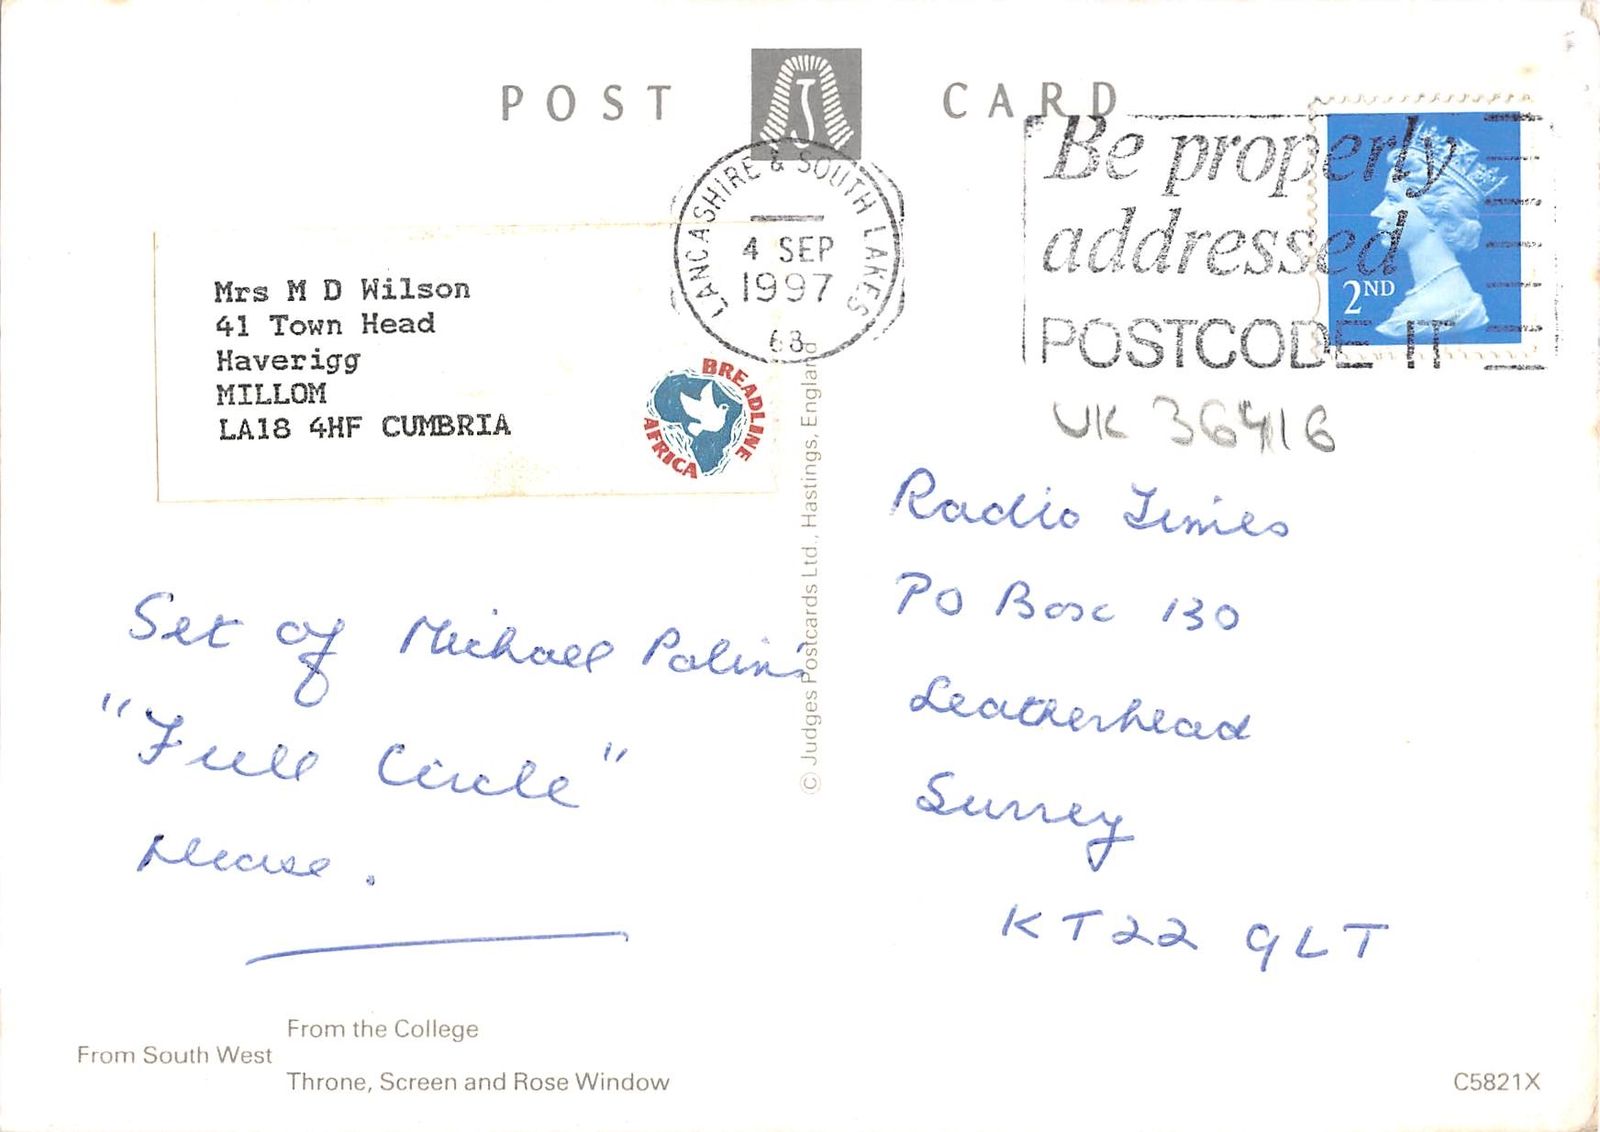 POST CARD
J
LANCASHIRE & SOUTH LAKES
4 SEP
1997
68
Be properly
addressed
POSTCODE IT
2ND
Mrs M D Wilson
41 Town Head
Haverigg
MILLOM
LA18 4HF CUMBRIA
BREADLINE
AFRICA
UK 36416
Radio Times
PO Box 130
Leatherhead
Surrey
KT22 9LT
Set of Michael Palin's
"Full Circle"
please.
© Judges Postcards Ltd., Hastings, England
From the College
From South West
Throne, Screen and Rose Window
C5821X